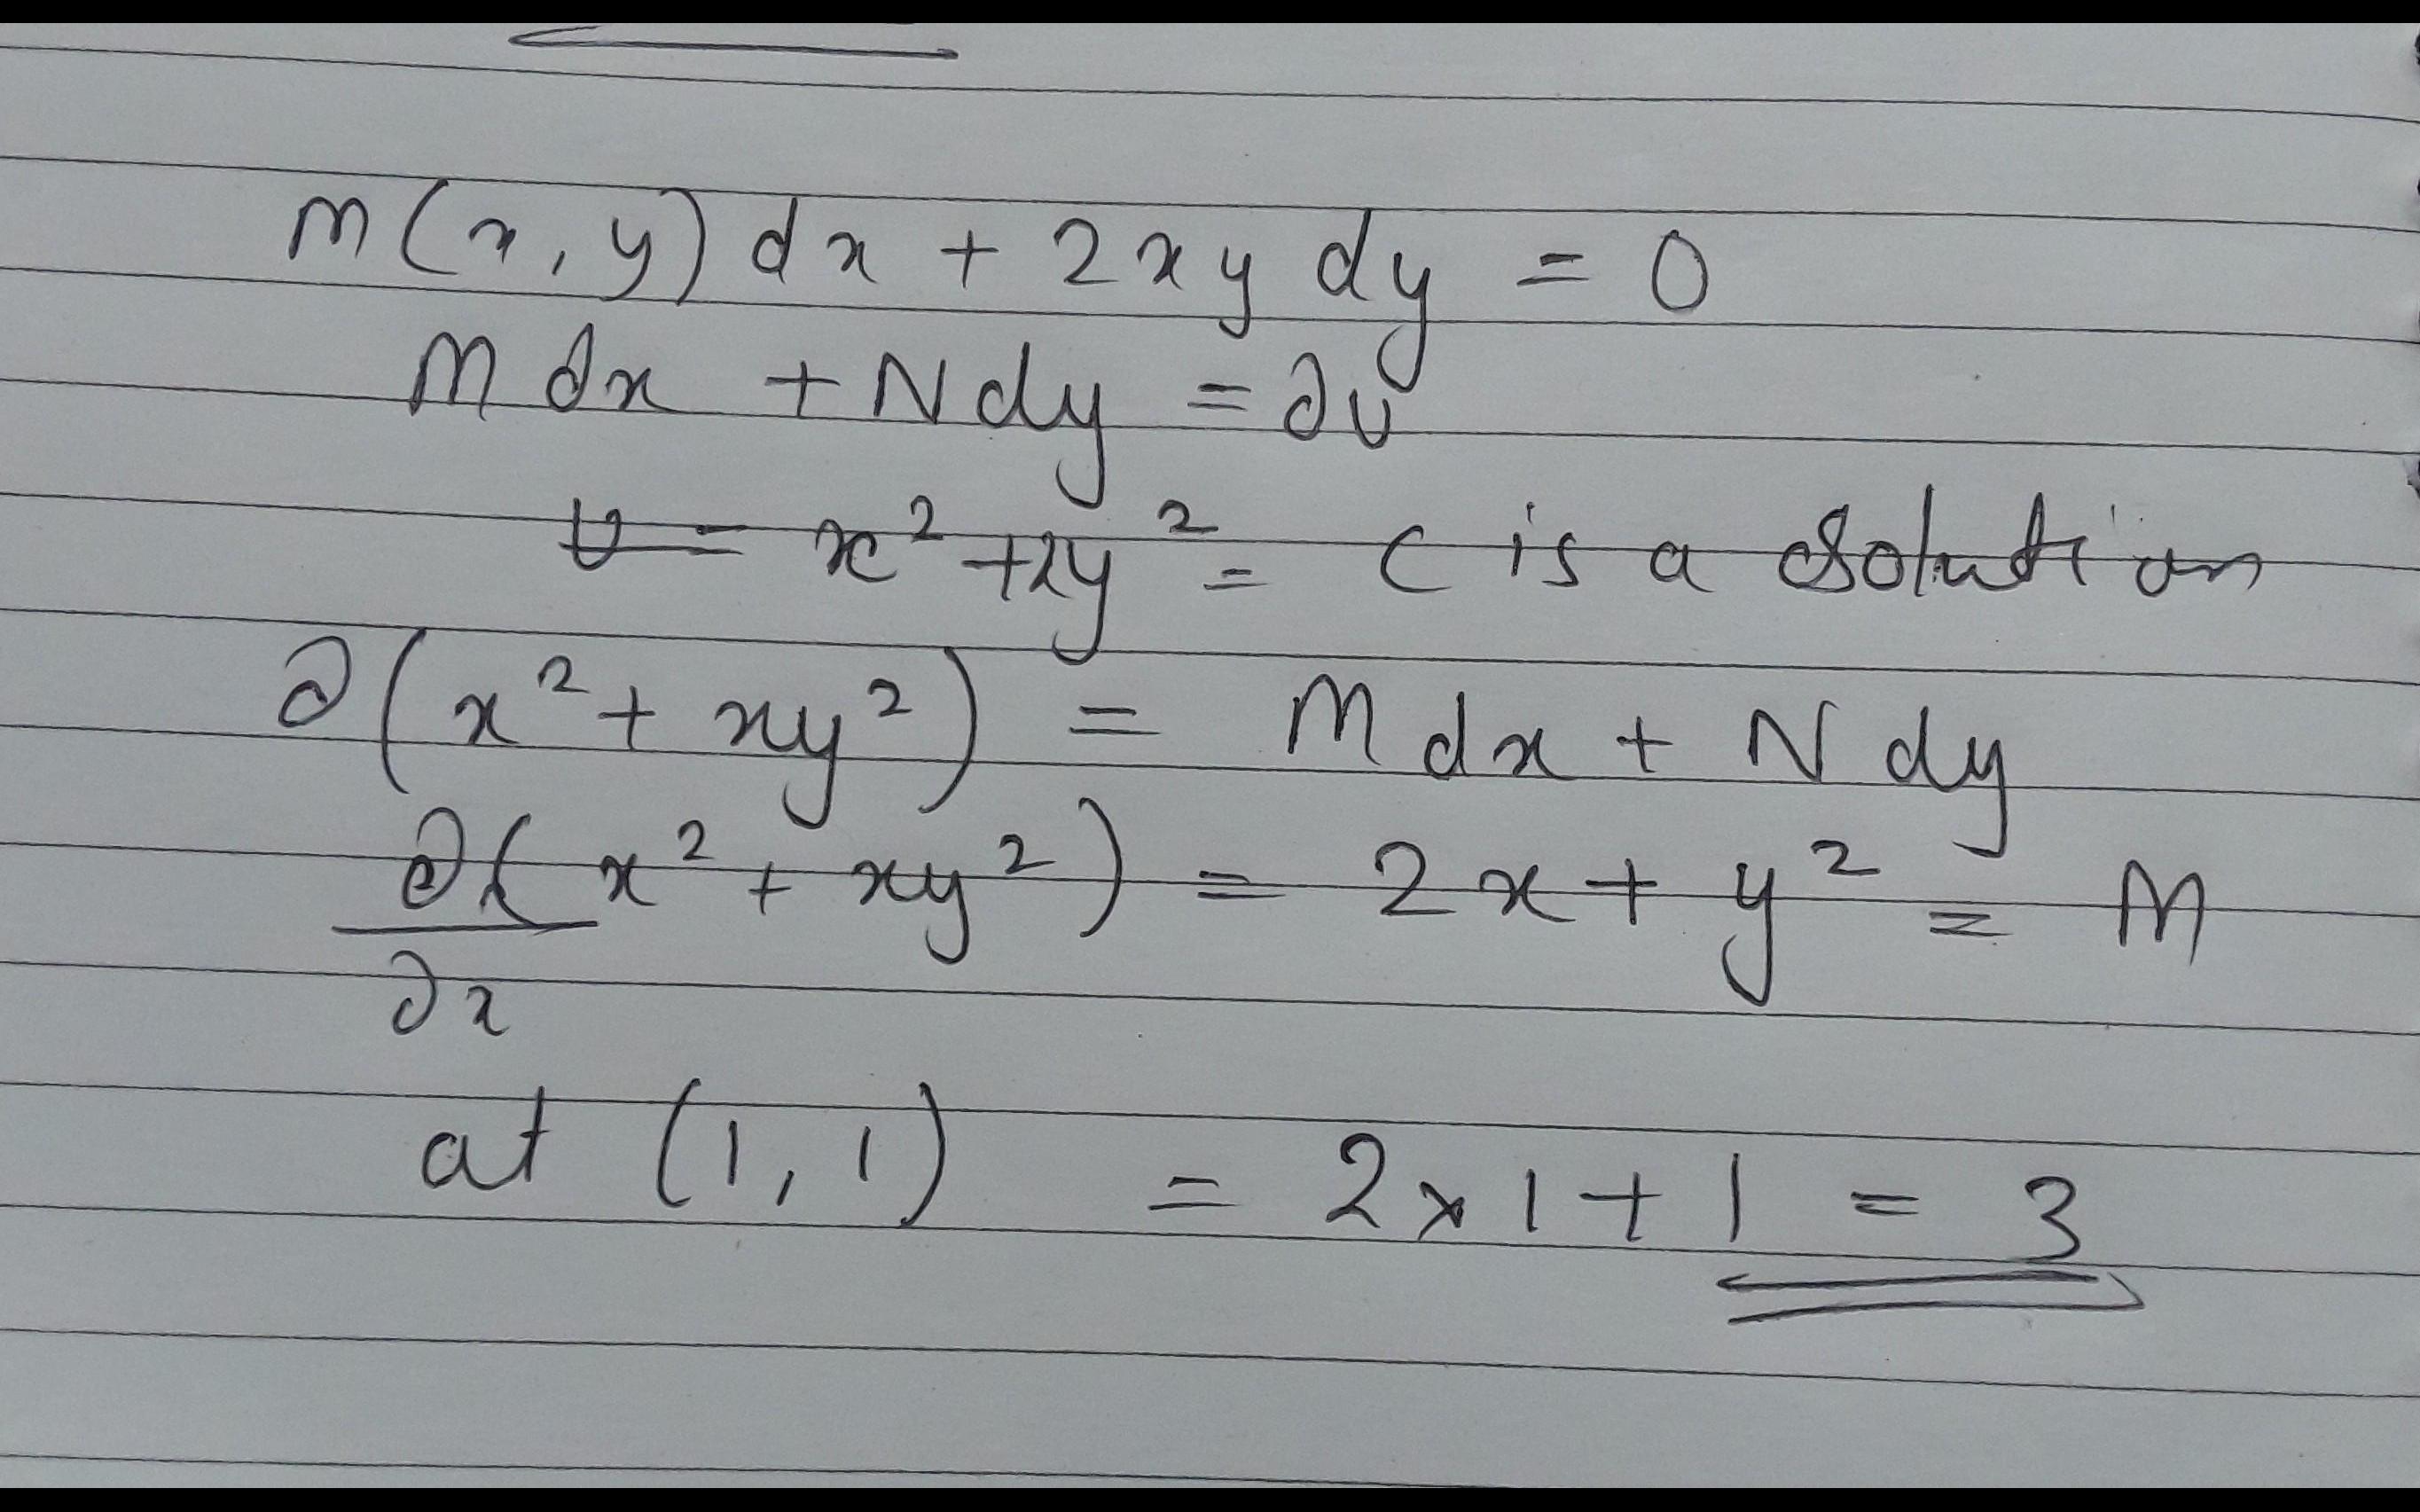 M(x,y) dx + 2xy dy = 0
M dx + N dy = ∂u
U = x² + xy² = c is a solution
∂(x² + xy²) = M dx + N dy
∂/∂x (x² + xy²) = 2x + y² = M
at (1,1) = 2×1+1 = 3